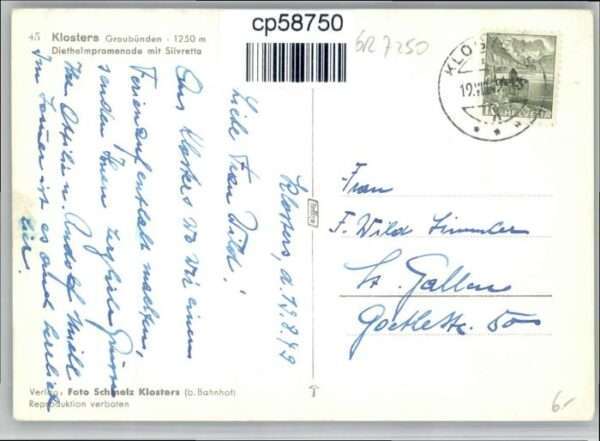 cp58750
GR 7250
45 Klosters Graubünden · 1250 m
Diethelmpromenade mit Silvretta
KLOS
19.VIII.
HELVETIA
Klosters, d. 19.8.49
Liebe Frau Wild!
Aus Klosters wo wir einen
Ferienaufenthalt machten,
senden Ihnen herzliche Grüsse
Ihre Ottilie u. Rudolf
Im Sommer ist es auch herrlich
hier!
Frau
F. Wild
St. Gallen
Goethestr. 50
Verlag: Foto Schmelz Klosters (b. Bahnhof)
Reproduktion verboten
6.-